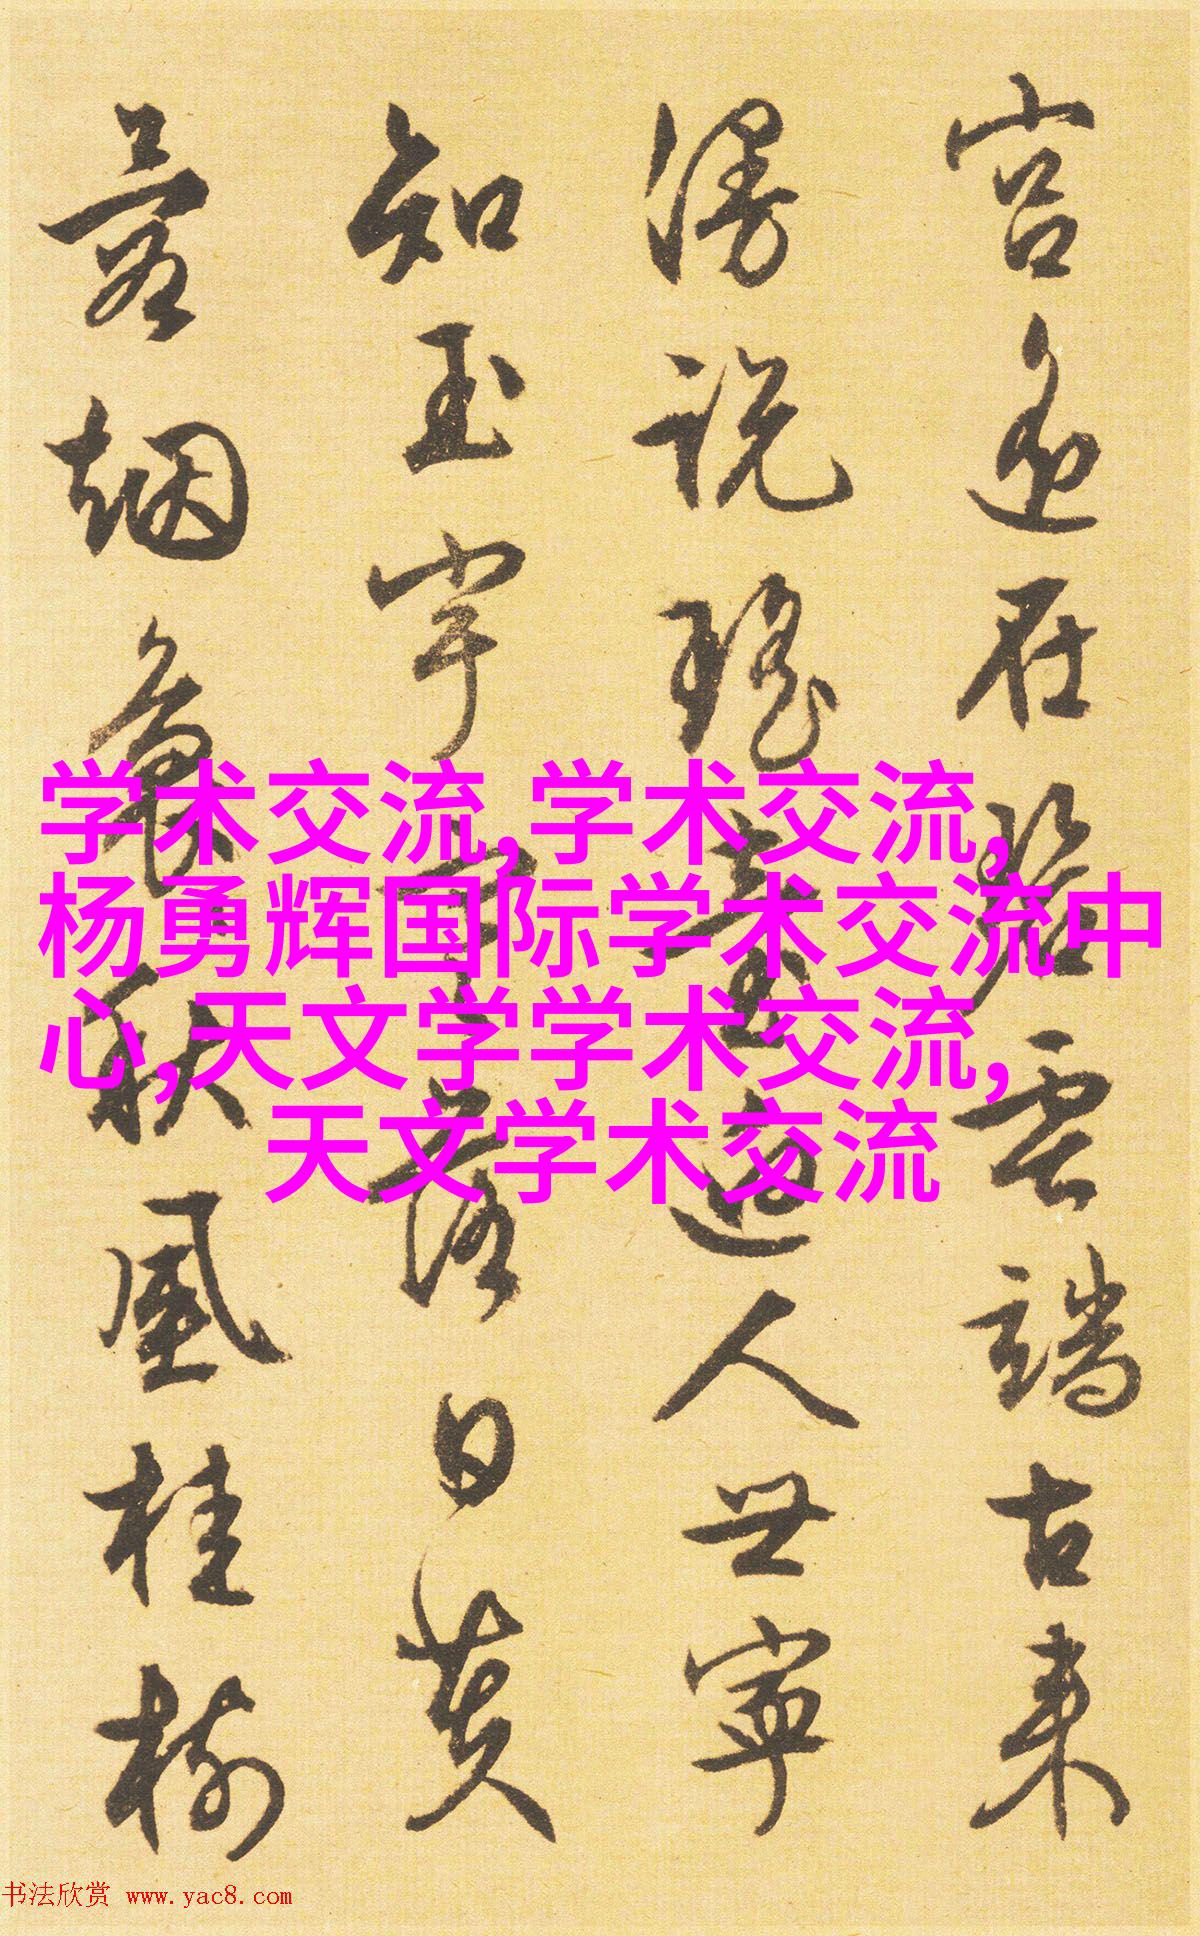 宫在碧雲端古来
漫説瑶臺迥人世寧
知玉宇落日黄
烟秋風桂樹
学术交流,学术交流,
杨勇辉国际学术交流中
心,天文学学术交流,
天文学术交流
书法欣赏 www.yac8.com